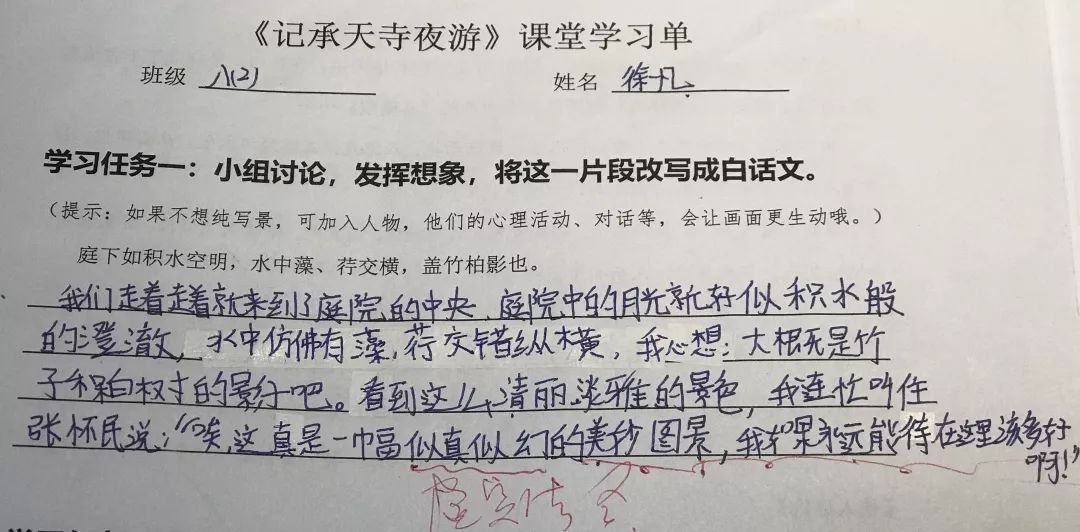 《记承天寺夜游》课堂学习单
班级 八(2) 姓名 徐凡
学习任务一：小组讨论，发挥想象，将这一片段改写成白话文。
（提示：如果不想纯写景，可加入人物，他们的心理活动、对话等，会让画面更生动哦。）
庭下如积水空明，水中藻、荇交横，盖竹柏影也。
我们走着走着就来到了庭院的中央，庭院中的月光就好似积水般
的澄澈，水中仿佛有藻，荇交错纵横，我心想：大概是竹
子和白权寸的影子吧。看到这么清丽淡雅的景色，我连忙叫住
张怀民说：“唉，这真是一幅似真似幻的美妙图景，我如果永远能待在这里该多好
啊！”